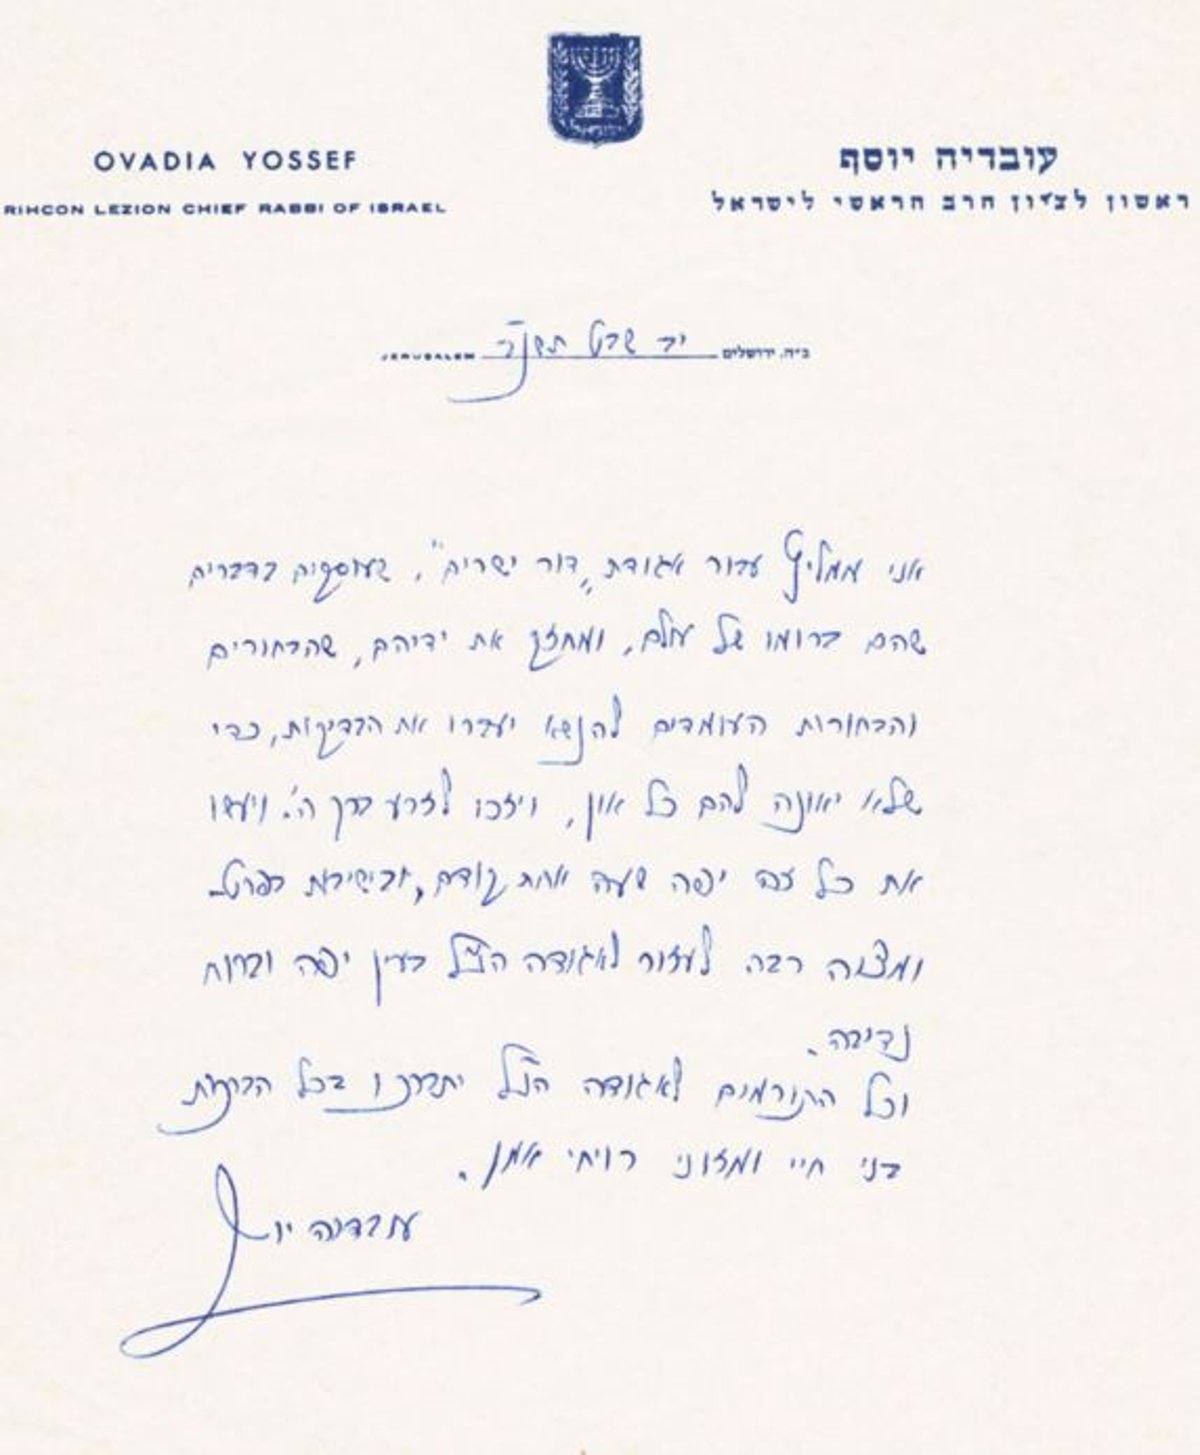 ישראל
OVADIA YOSSEF
עובדיה יוסף
RIHCON LEZION CHIEF RABBI OF ISRAEL
ראשון לציון הרב הראשי לישראל
JERUSALEM יד שבט תשנ"ד ב"ה. ירושלים
אני ממליץ עבור אגודת "דור ישרים", שעוסקים בדברים
שהם ברומו של עולם, ומחזק את ידיהם, שהבחורים
והבחורות העומדים להנשא יעברו את הבדיקות, כדי
שלא יאונה להם כל און, ויזכו לזרע ברך ה'. ויעשו
את כל זה יפה שעה אחת קודם, ובישיבות בפרט.
ומצוה רבה לעזור לאגודה הנ"ל בעין יפה וברוח
נדיבה.
וכל התורמים לאגודה הנ"ל יתברכו בכל הברכות
בני חיי ומזוני רויחי אמן.
עובדיה יוסף